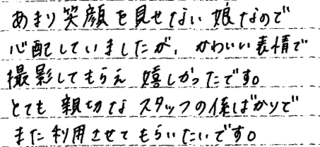 あまり笑顔を見せない娘なので
心配していましたが、かわいい表情で
撮影してもらえ嬉しかったです。
とても親切なスタッフの係ばかりで
また利用させてもらいたいです。